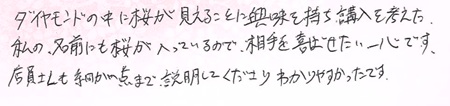 ダイヤモンドの中に桜が見えることに興味を持ち購入を考えた。
私の、名前にも桜が入っているので、相手を喜ばせたい一心です、
店員さんも細かい点まで説明してくださりわかりやすかったです。